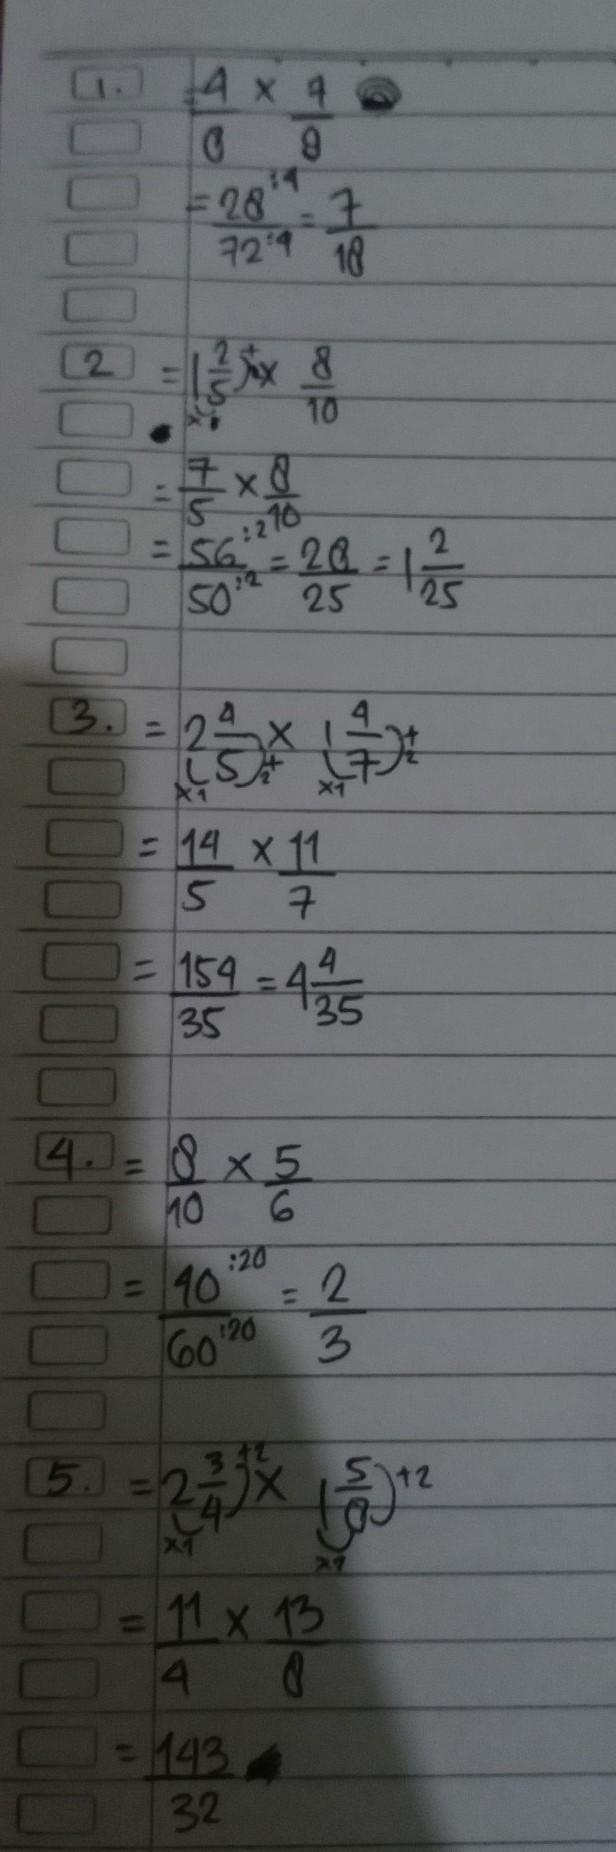 1. = 4/8 × 7/9
= 28:4/72:4 = 7/18
2 = 1 2/5 )+ × 8/10
×1
= 7/5 × 8/10
= 56:2/50:2 = 28/25 = 1 2/25
3. = 2 4/5 )+2 × 1 4/7 )+2
×1 ×1
= 14/5 × 11/7
= 154/35 = 4 4/35
4. = 8/10 × 5/6
= 40:20/60:20 = 2/3
5. = 2 3/4 )+2 × 1 5/8 )+2
×1 ×1
= 11/4 × 13/8
= 143/32